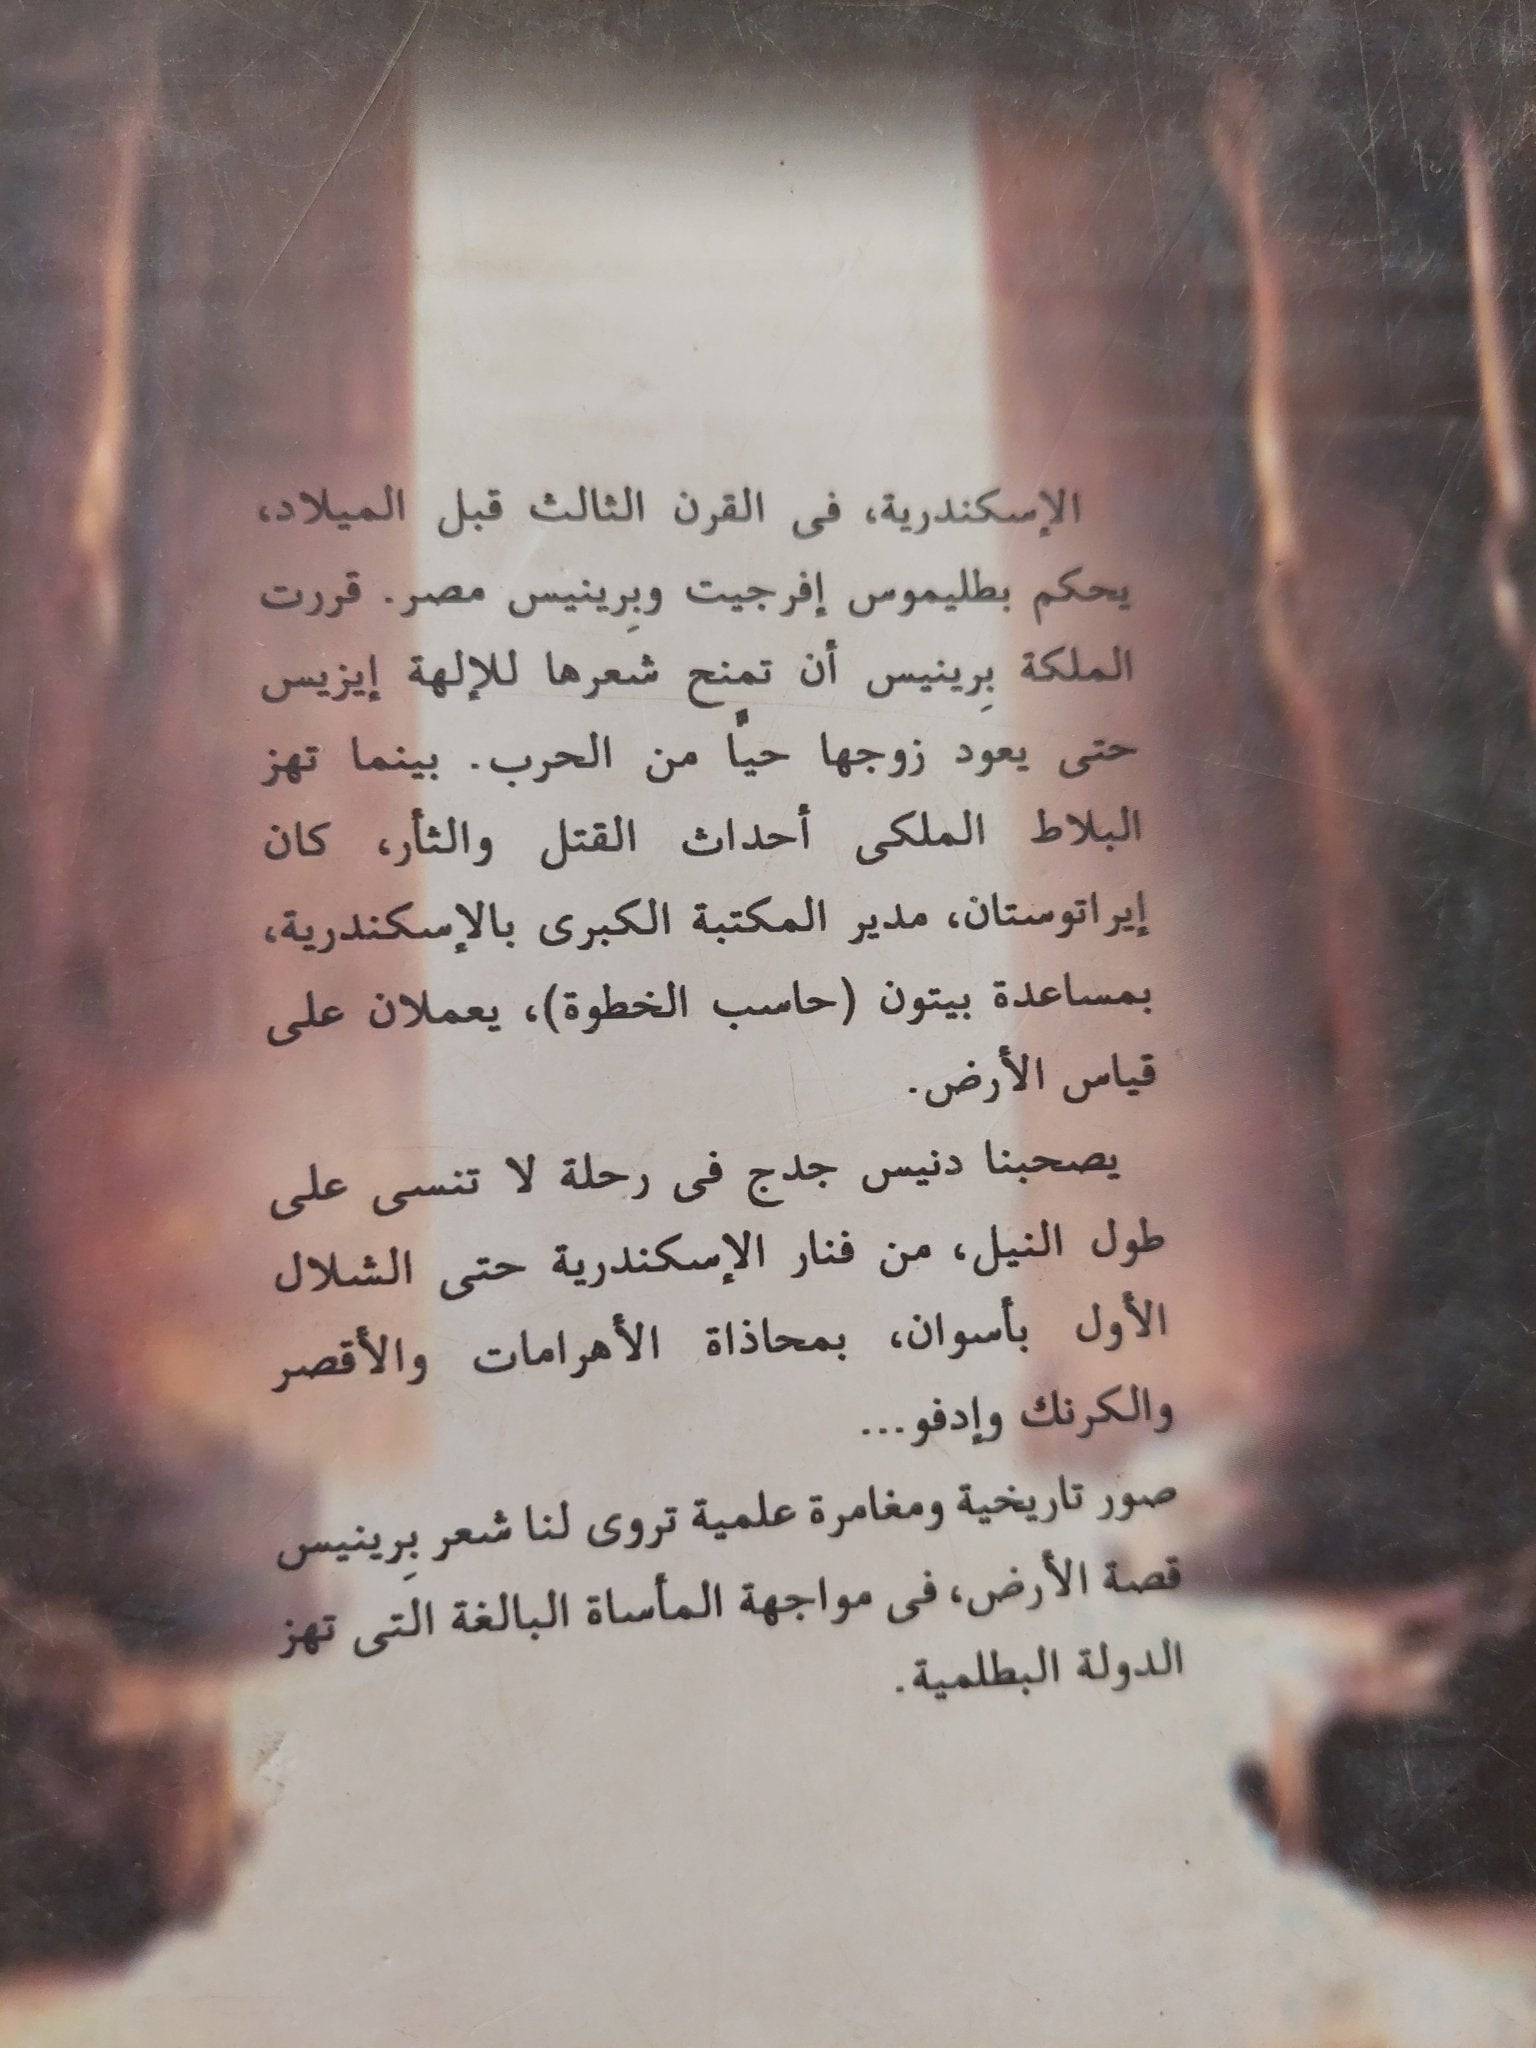 الإسكندرية، فى القرن الثالث قبل الميلاد،
يحكم بطليموس إفرجيت وبِرينيس مصر. قررت
الملكة بِرينيس أن تمنح شعرها للإلهة إيزيس
حتى يعود زوجها حياً من الحرب. بينما تهز
البلاط الملكى أحداث القتل والثأر، كان
إيراتوستان، مدير المكتبة الكبرى بالإسكندرية،
بمساعدة بيتون (حاسب الخطوة)، يعملان على
قياس الأرض.
يصحبنا دنيس جدج فى رحلة لا تنسى على
طول النيل، من فنار الإسكندرية حتى الشلال
الأول بأسوان، بمحاذاة الأهرامات والأقصر
والكرنك وإدفو...
صور تاريخية ومغامرة علمية تروى لنا شعر بِرينيس
قصة الأرض، فى مواجهة المأساة البالغة التى تهز
الدولة البطلمية.